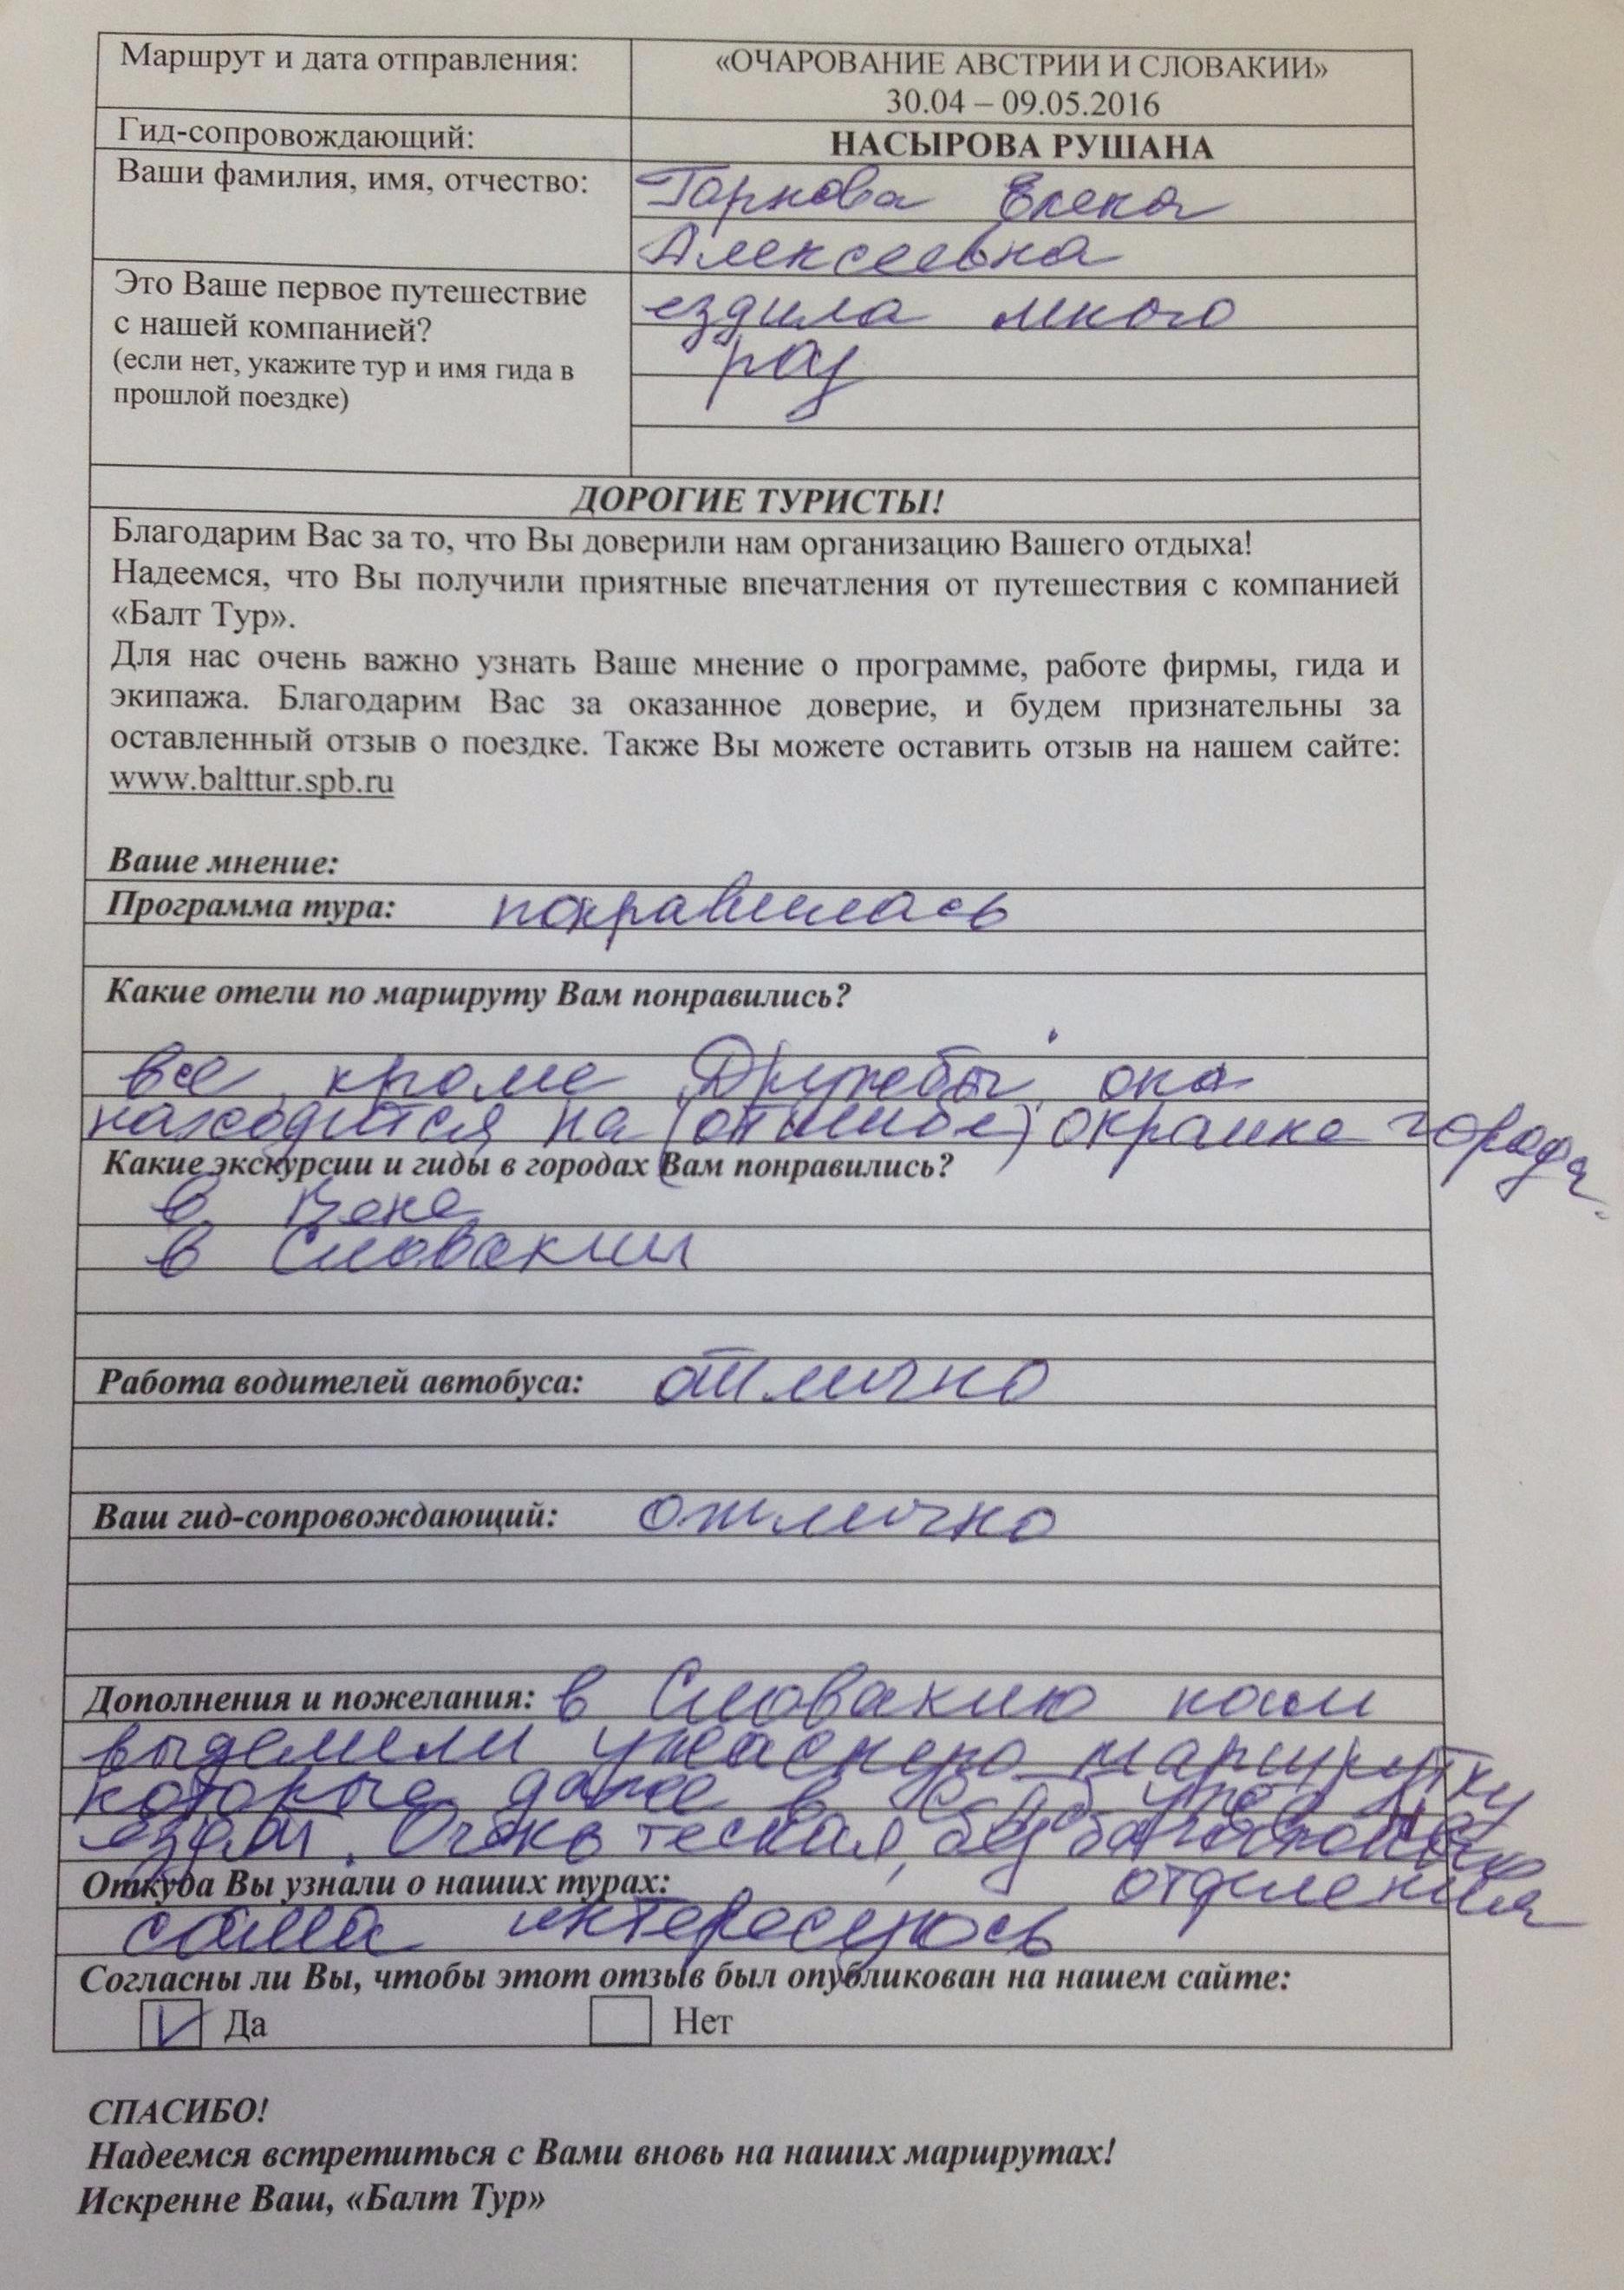 Маршрут и дата отправления:
«ОЧАРОВАНИЕ АВСТРИИ И СЛОВАКИИ»
30.04 – 09.05.2016
Гид-сопровождающий:
НАСЫРОВА РУШАНА
Ваши фамилия, имя, отчество:
Елена
Алексеевна
Это Ваше первое путешествие
с нашей компанией?
(если нет, укажите тур и имя гида в
прошлой поездке)
ездила много
раз
ДОРОГИЕ ТУРИСТЫ!
Благодарим Вас за то, что Вы доверили нам организацию Вашего отдыха!
Надеемся, что Вы получили приятные впечатления от путешествия с компанией
«Балт Тур».
Для нас очень важно узнать Ваше мнение о программе, работе фирмы, гида и
экипажа. Благодарим Вас за оказанное доверие, и будем признательны за
оставленный отзыв о поездке. Также Вы можете оставить отзыв на нашем сайте:
www.balttur.spb.ru
Ваше мнение:
Программа тура: понравилась
Какие отели по маршруту Вам понравились?
все, кроме Дружбы, она
находится на окраине города.
Какие экскурсии и гиды в городах Вам понравились?
в Вене
в Словакии
Работа водителей автобуса: отлично
Ваш гид-сопровождающий: отлично
Дополнения и пожелания: в Словакию нам
выделили ужасную маршрутку
которые даже в уже не
ездят. Очень тесная, без багажного
отделения
Откуда Вы узнали о наших турах:
сама интересуюсь
Согласны ли Вы, чтобы этот отзыв был опубликован на нашем сайте:
Да Нет
СПАСИБО!
Надеемся встретиться с Вами вновь на наших маршрутах!
Искренне Ваш, «Балт Тур»